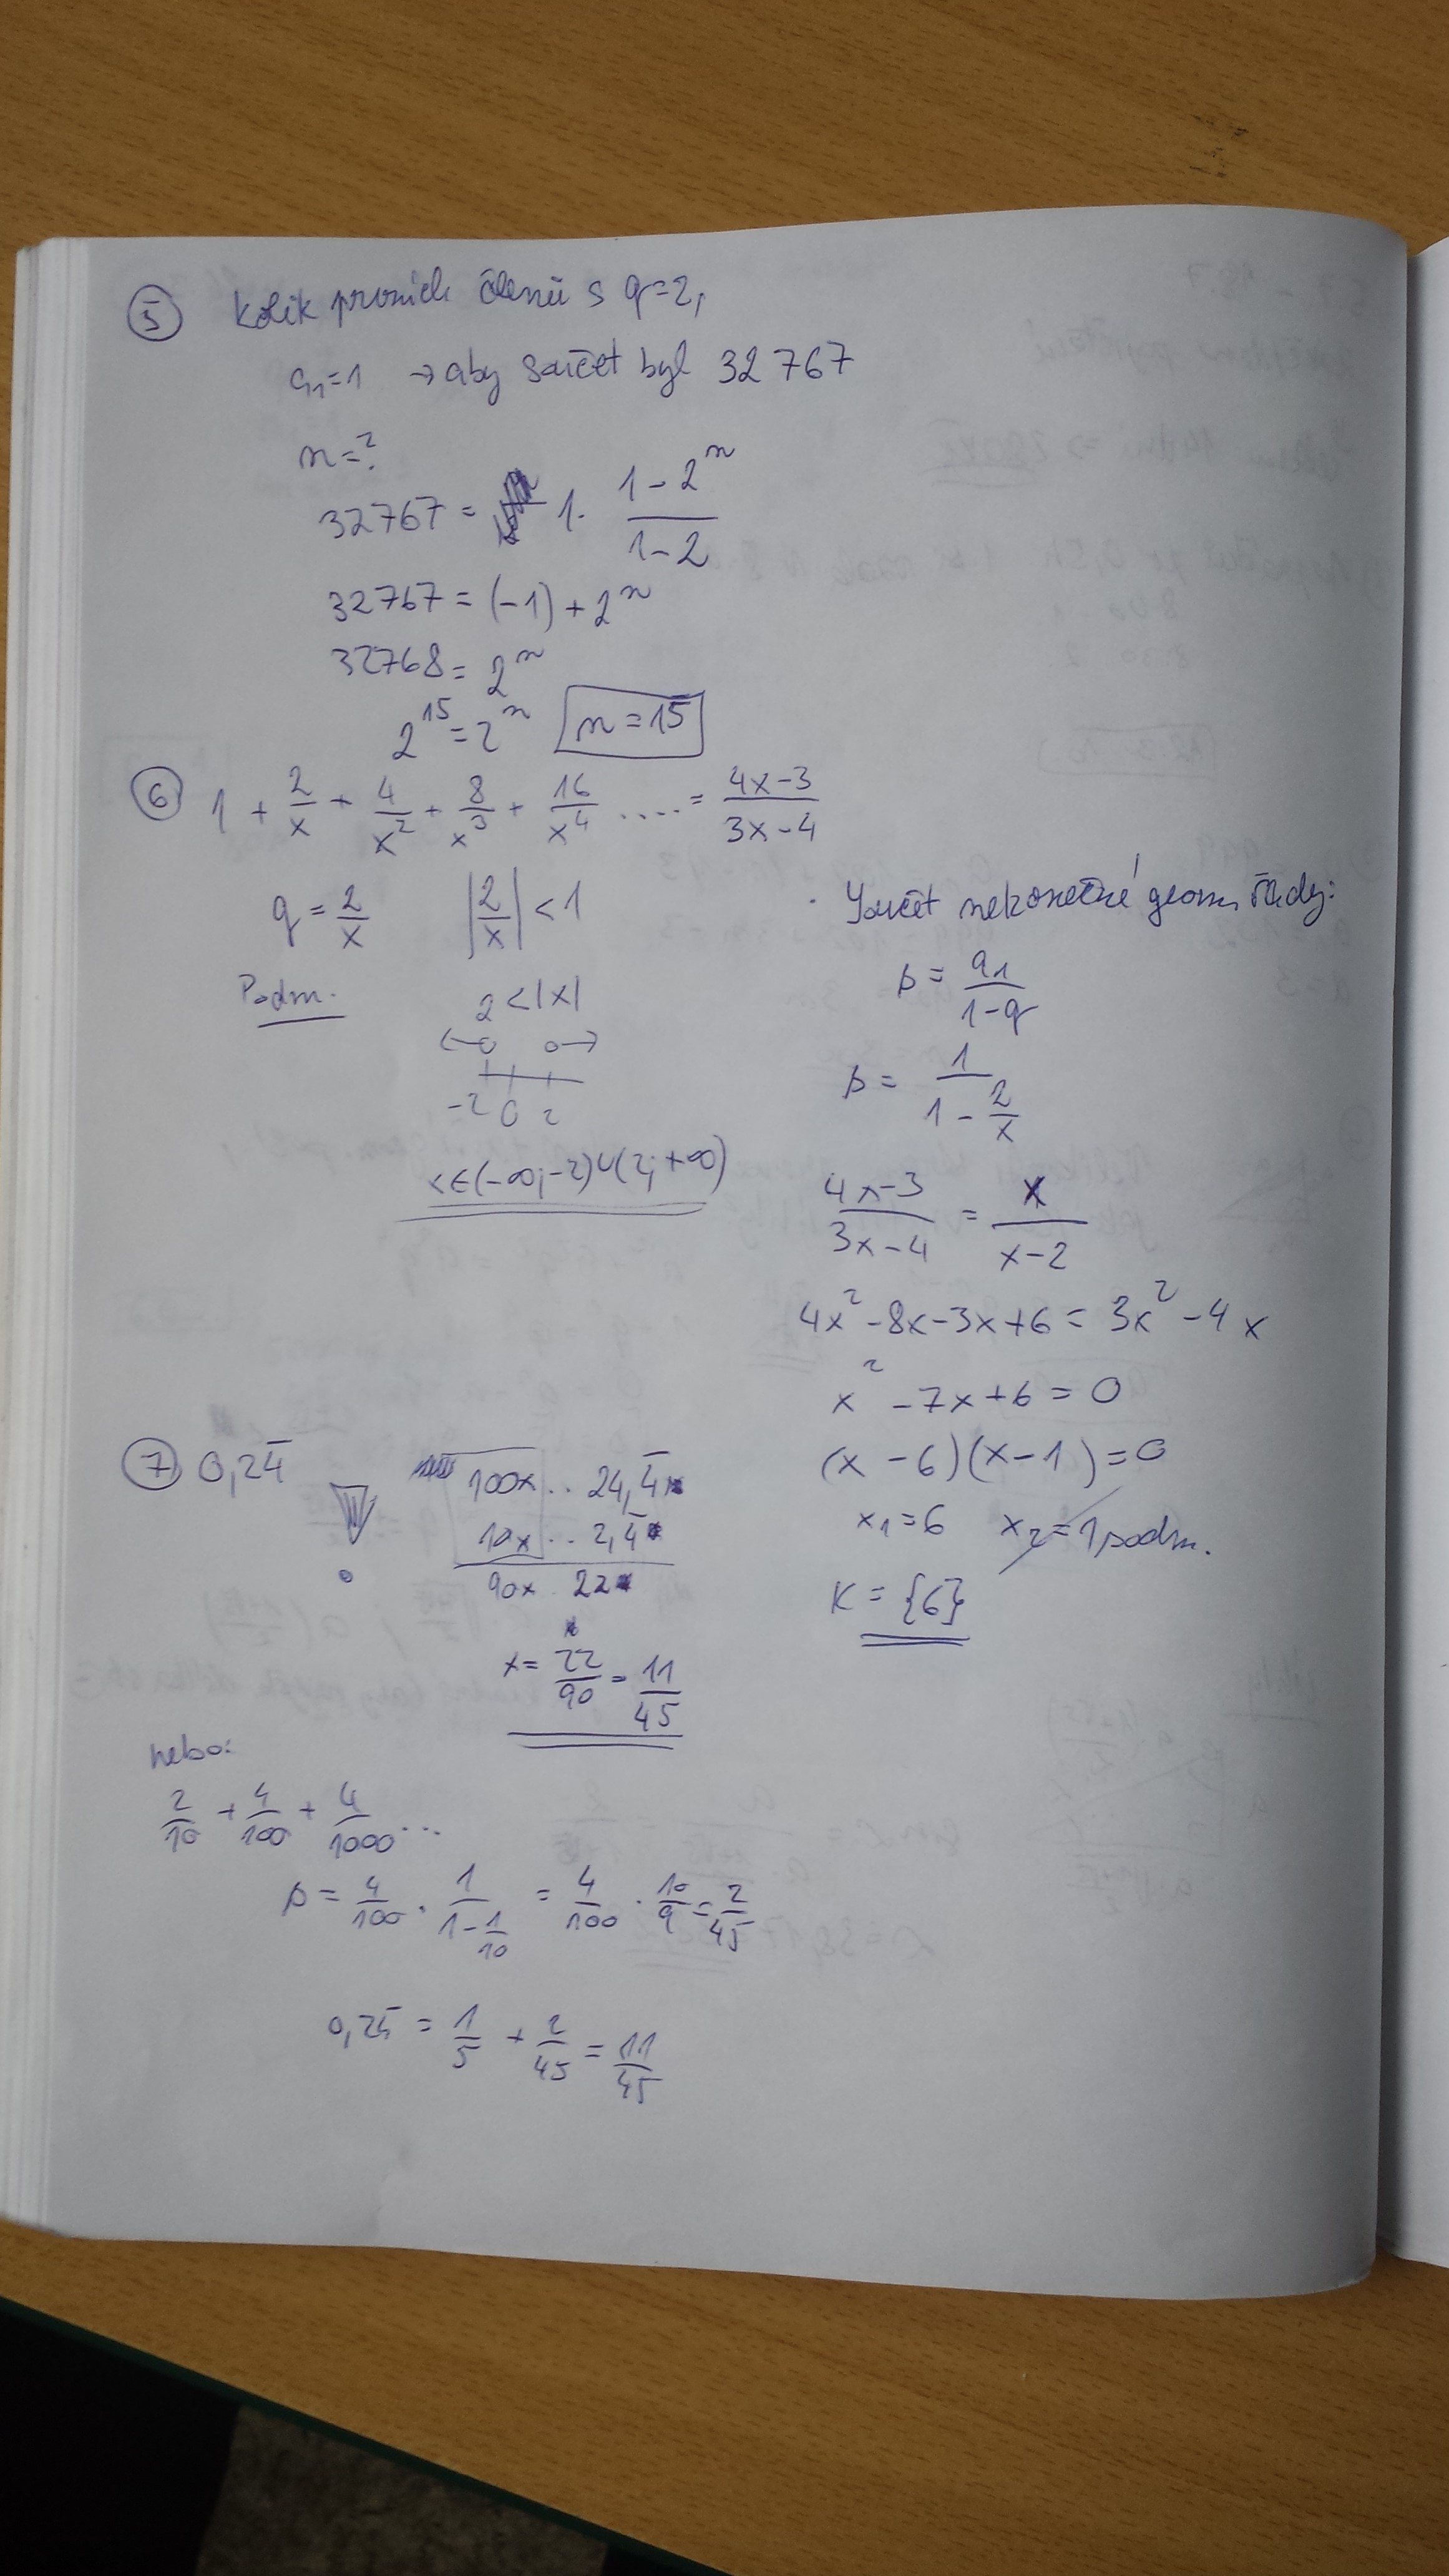 5 Kolik prvních členů s q=2,
a₁=1 → aby součet byl 32 767
n=?
32767 = 1 · (1-2ⁿ)/(1-2)
32767 = (-1) + 2ⁿ
32768 = 2ⁿ
2¹⁵ = 2ⁿ n = 15
6 1 + 2/x + 4/x² + 8/x³ + 16/x⁴ ..... = (4x-3)/(3x-4)
q = 2/x |2/x| < 1
Podm. 2 < |x|
-2 0 2
x∈(-∞;-2)∪(2;+∞)
Součet nekonečné geom. řady:
s = a₁/(1-q)
s = 1/(1 - 2/x)
(4x-3)/(3x-4) = x/(x-2)
4x² - 8x - 3x + 6 = 3x² - 4x
x² - 7x + 6 = 0
(x - 6)(x - 1) = 0
x₁ = 6 x₂ = 1 podm.
K = {6}
7 0,24̅
100x .. 24,4̅
10x .. 2,4̅
90x 22
x = 22/90 = 11/45
nebo:
2/10 + 4/100 + 4/1000 ...
s = 4/100 · 1/(1 - 1/10) = 4/100 · 10/9 = 2/45
0,24̅ = 1/5 + 2/45 = 11/45